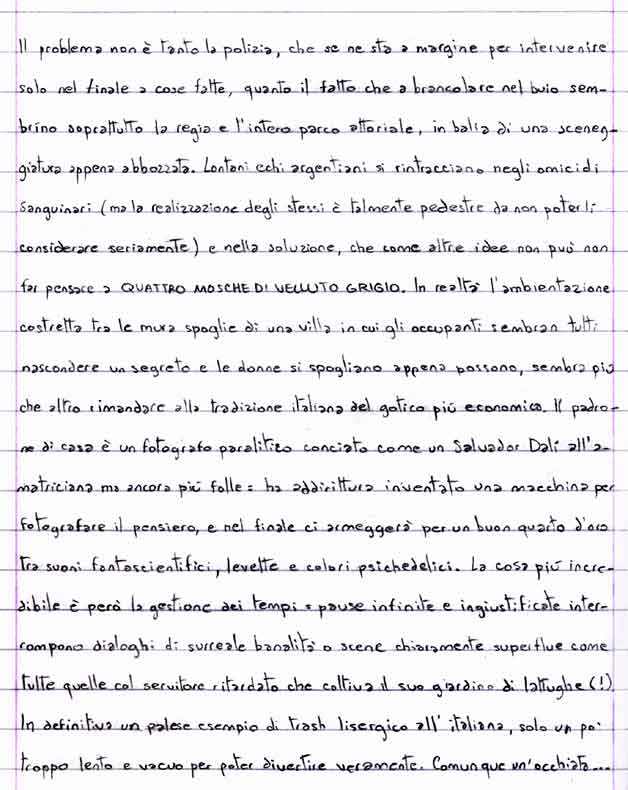 Il problema non è tanto la polizia, che se ne sta a margine per intervenire
solo nel finale a cose fatte, quanto il fatto che a brancolare nel buio sem-
brino soprattutto la regia e l'intero parco attoriale, in balìa di una sceneg-
giatura appena abbozzata. Lontani echi argentiani si rintracciano negli omicidi
sanguinari (ma la realizzazione degli stessi è talmente pedestre da non poterli
considerare seriamente) e nella soluzione, che come altre idee non può non
far pensare a QUATTRO MOSCHE DI VELLUTO GRIGIO. In realtà l'ambientazione
costretta tra le mura spoglie di una villa in cui gli occupanti sembran tutti
nascondere un segreto e le donne si spogliano appena possono, sembra più
che altro rimandare alla tradizione italiana del gotico più economico. Il padro-
ne di casa è un fotografo paralitico conciato come un Salvador Dalì all'a-
matriciana ma ancora più folle: ha addirittura inventato una macchina per
fotografare il pensiero, e nel finale ci armeggerà per un buon quarto d'ora
tra suoni fantascientifici, levette e colori psichedelici. La cosa più incre-
dibile è però la gestione dei tempi: pause infinite e ingiustificate inter-
rompono dialoghi di surreale banalità o scene chiaramente superflue come
tutte quelle col servitore ritardato che coltiva il suo giardino di lattughe (!).
In definitiva un palese esempio di trash lisergico all'italiana, solo un po'
troppo lento e vacuo per poter divertire veramente. Comunque un'occhiata...